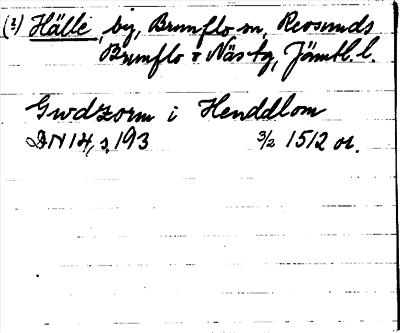 (2) Hälle, by, Brunflo sn, Revsunds
Brunflo o Näs tg, Jämtl. l.
Gwdzorm i Henddlom
DN 14, s. 193 3/2 1512 or.